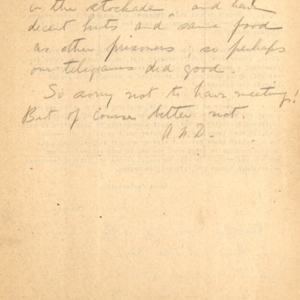 in the stockade, and had
decent huts and same food
as other prisoners, so perhaps
our telegrams did good.
So sorry not to have meeting!
But of course better not.
A.N.D.